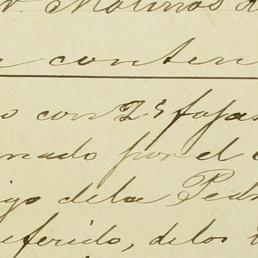 Molinos de
conten
o con 25 fojas
mado por el
igo dela Pedr
referido, delos